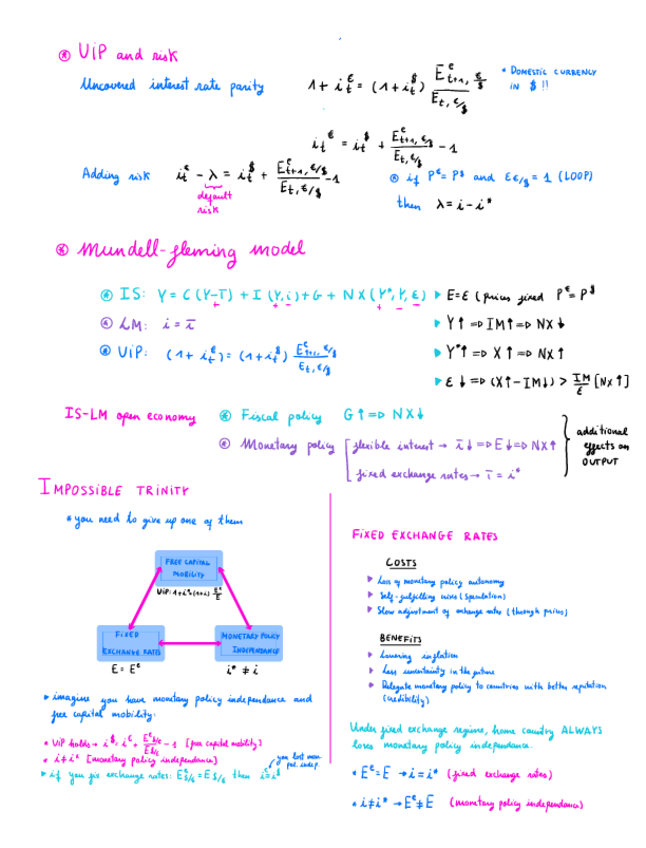 ⊛ UiP and risk
Uncovered interest rate parity 1 + i_t^€ = (1+i_t^$) E^e_{t+1, €/$} / E_{t, €/$} * DOMESTIC CURRENCY IN $ !!
i_t^€ = i_t^$ + E^e_{t+1, €/$} / E_{t, €/$} - 1
Adding risk i_t^€ - λ = i_t^$ + E^e_{t+1, €/$} / E_{t, €/$} - 1
default risk
⊛ if P^€ = P^$ and E€/$ = 1 (LOOP)
then λ = i - i*
⊛ Mundell-fleming model
⊛ IS: Y = C(Y-T) + I(Y,i) + G + NX(Y*,Y,ε)
+ + - + - -
⊛ LM: i = ī
⊛ UiP: (1+i_t^€) = (1+i_t^$) E^e_{t+1, €/$} / E_{t, €/$}
▸ E=ε (prices fixed P^€ = P^$
▸ Y↑ ⇒ IM↑ ⇒ NX↓
▸ Y*↑ ⇒ X↑ ⇒ NX↑
▸ ε↓ ⇒ (X↑-IM↓) > IM/ε [NX↑]
IS-LM open economy ⊛ Fiscal policy G↑ ⇒ NX↓
⊛ Monetary policy flexible interest → ī↓ ⇒ E↓ ⇒ NX↑
fixed exchange rates → ī = i*
additional effects on OUTPUT
IMPOSSIBLE TRINITY
* you need to give up one of them
FREE CAPITAL MOBILITY
UiP: 1+i*=(1+i) E^e/E
FIXED EXCHANGE RATES
E = E^e
MONETARY POLICY INDEPENDENCE
i* ≠ i
▸ imagine you have monetary policy independence and
free capital mobility:
* UiP holds → i^$, i^€ + E^e $/€ / E $/€ - 1 [free capital mobility]
* i≠i* [monetary policy independence]
▸ if you fix exchange rates: E^e $/€ = E $/€ then i=i^$
you lost mon. pol. indep.
FIXED EXCHANGE RATES
COSTS
▸ Loss of monetary policy autonomy
▸ Self-fulfilling crises (speculation)
▸ Slow adjustment of exchange rates (through prices)
BENEFITS
▸ Lowering inflation
▸ Less uncertainty in the future
▸ Delegate monetary policy to countries with better reputation
(credibility)
Under fixed exchange regime, home country ALWAYS
loses monetary policy independence.
* E^e = E → i = i* (fixed exchange rates)
* i≠i* → E^e≠E (monetary policy independence)